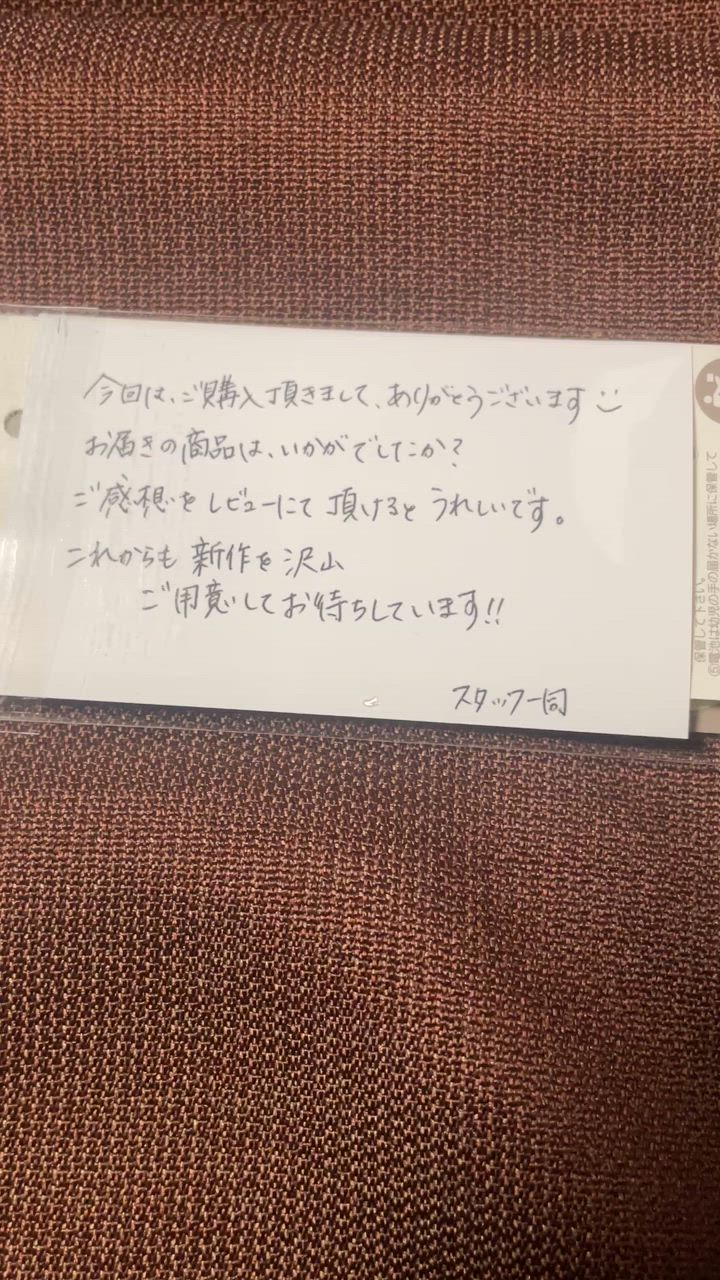 今回は、ご購入頂きまして、ありがとうございます
お届きの商品は、いかがでしたか?
ご感想をレビューにて頂けるとうれしいです。
これからも新作を沢山
ご用意してお待ちしています!!
スタッフ一同
保管して下さい。
⑥電池は幼児の手の届かない場所に保管して